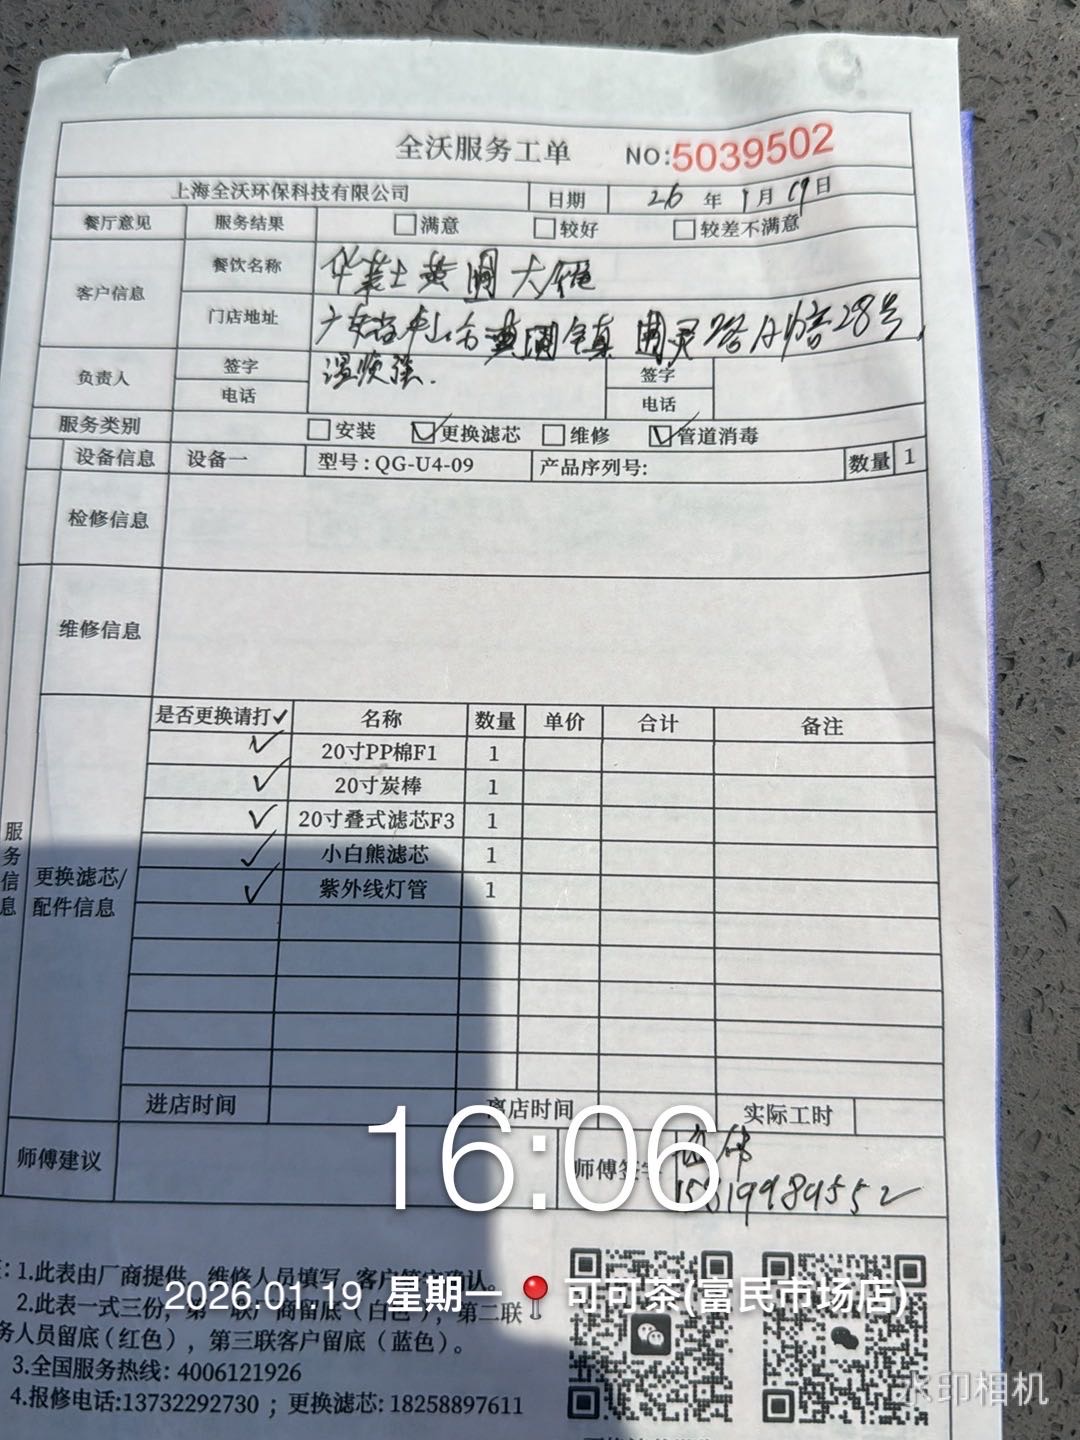 全沃服务工单 NO:5039502
上海全沃环保科技有限公司 日期 26年1月19日
餐厅意见 服务结果 满意 较好 较差不满意
客户信息 餐饮名称 华莱士黄圃大
门店地址 广东省中山市黄圃镇 28号
负责人 签字 温顺 签字
电话 电话
服务类别 安装 更换滤芯 维修 管道消毒
设备信息 设备一 型号:QG-U4-09 产品序列号: 数量 1
检修信息
维修信息
服务信息
更换滤芯/配件信息
是否更换请打✓ 名称 数量 单价 合计 备注
✓ 20寸PP棉F1 1
✓ 20寸炭棒 1
✓ 20寸叠式滤芯F3 1
✓ 小白熊滤芯 1
✓ 紫外线灯管 1
进店时间 离店时间 实际工时
师傅建议 师傅签字 伟
16:06
1.此表由厂商提供,维修人员填写,客户签字确认。
2026.01.19 星期一 可可茶(富民市场店)
2.此表一式三份,第一联厂商留底(白色),第二联
务人员留底(红色),第三联客户留底(蓝色)。
3.全国服务热线: 4006121926
4.报修电话:13732292730 ;更换滤芯: 18258897611
水印相机